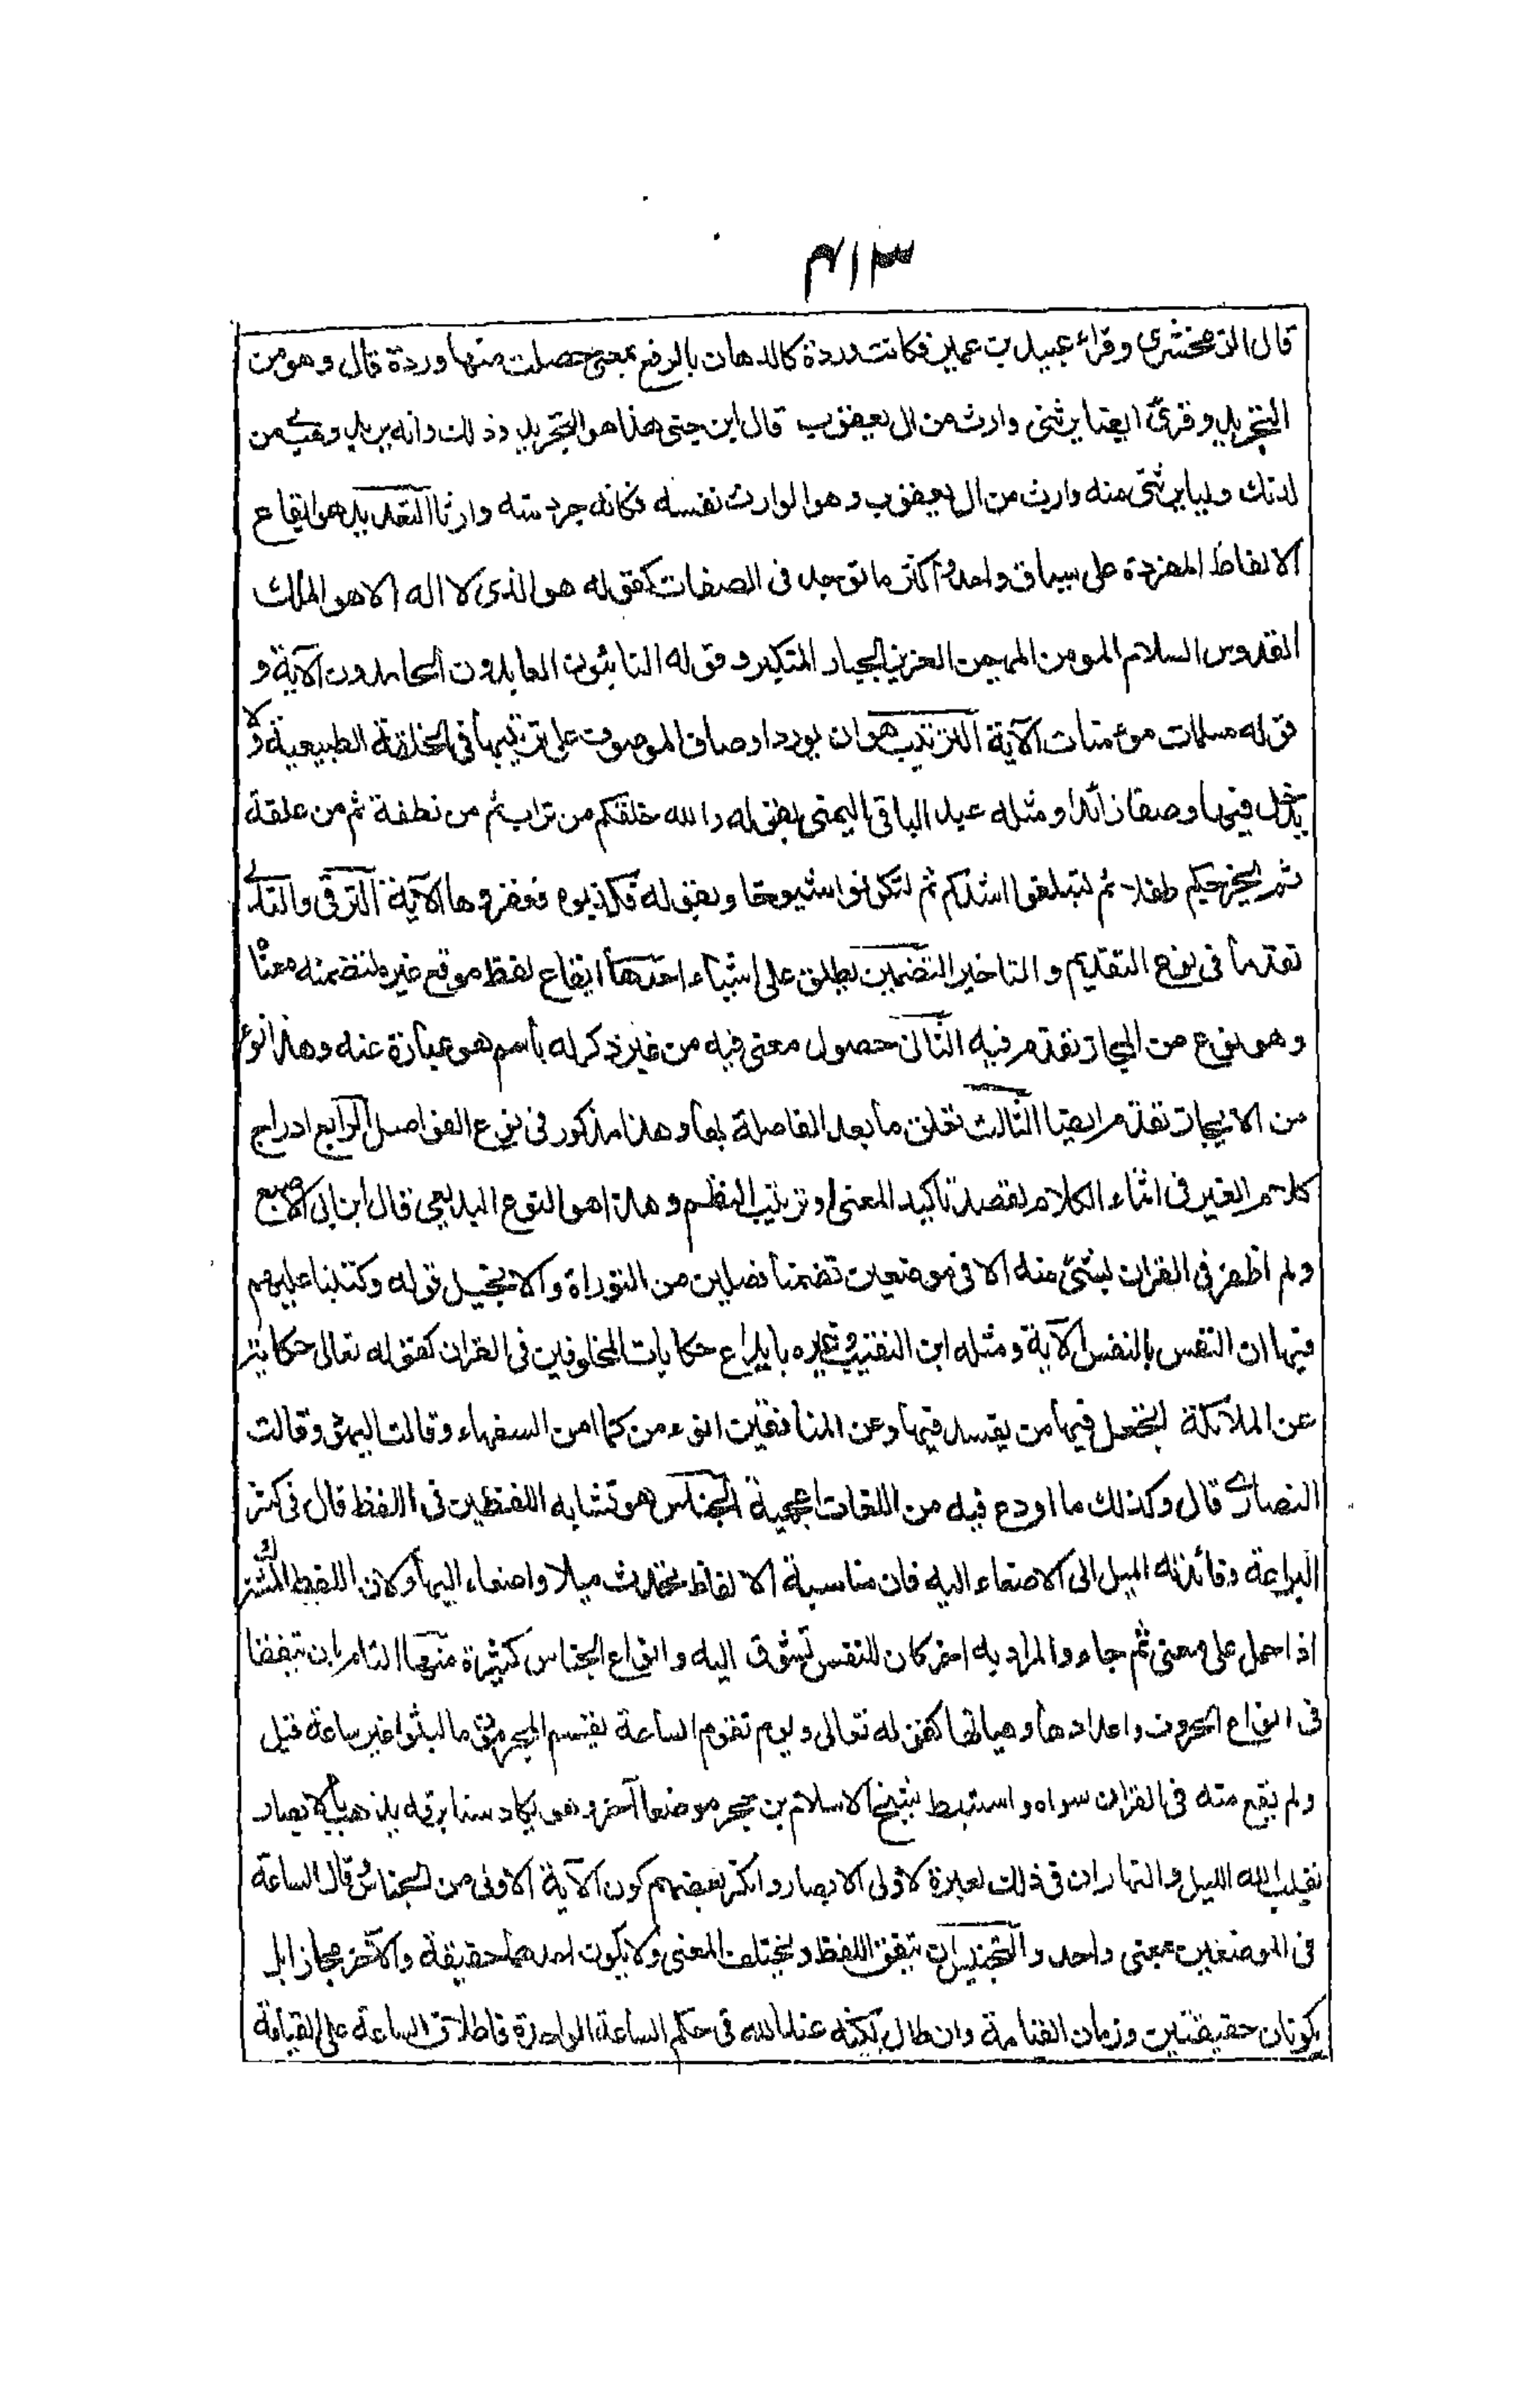 ٤١٣
قال الزمخشري وقراء عبيد بن عمير فكانت وردة كالدهان بالرفع بمعنى حصلت منها وردة قال وهو من
التجريد وقرئ ايضا يرثنى وارث من ال يعقوب قال ابن جنى هذا هو التجريد وذلك وانه يريد وهب لى من
لدنك وليا يرثنى منه وارث من ال يعقوب وهو الوارث نفسه فكانه جرد منه وارثا التعديد هو ايقاع
الالفاظ المفردة على سياق واحد واكثر ما توجد فى الصفات كقوله هو الذى لا اله الا هو الملك
القدوس السلام المومن المهيمن العزيز الجبار المتكبر وقوله التائبون العابدون الحامدون الآية و
قوله مسلمات مومنات الآية الترتيب هو ان يورد اوصاف الموصوف على ترتيبها فى الخلقة الطبيعية ولا
يدخل فيها وصفا زائدا ومثله عبد الباقى اليمنى بقوله والله خلقكم من تراب ثم من نطفة ثم من علقة
ثم يخرجكم طفلا ثم لتبلغوا اشدكم ثم لتكونوا شيوخا وبقوله فكذبوه فعقروها الآية الترقى والتدلى
تقدما فى نوع التقديم والتاخير التضمين يطلق على اشياء احدها ايقاع لفظ موقع غيره لتضمنه معناه
وهو نوع من المجاز تقدم فيه الثانى حصول معنى فيه من غير ذكر له باسم هو عبارة عنه وهذا نوع
من الايجاز تقدم ايضا الثالث تعلق ما بعد الفاصلة بها وهذا مذكور فى نوع الفواصل الرابع ادراج
كلام الغير فى اثناء الكلام لقصد تاكيد المعنى او ترتيب النظم وهذا هو النوع البديعى قال ابن ابى الاصبع
ولم اظفر فى القران بشئ منه الا فى موضعين تضمنا فصلين من التوراة والانجيل قوله وكتبنا عليهم
فيها ان النفس بالنفس الآية ومثله ابن النقيب وغيره بايداع حكايات المخلوقين فى القران كقوله تعالى حكاية
عن الملائكة اتجعل فيها من يفسد فيها وعن المنافقين انؤمن كما امن السفهاء وقالت اليهود وقالت
النصارى قال وكذلك ما اودع فيه من اللغات الاعجمية الجناس هو تشابه اللفظين فى اللفظ قال فى كنز
البراعة وفائدته الميل الى الاصغاء اليه فان مناسبة الالفاظ تحدث ميلا واصغاء اليها ولان اللفظ المشترك
اذا حمل على معنى ثم جاء والمراد به اخر كان للنفس تشوق اليه وانواع الجناس كثيرة منها التام بان يتفقا
فى انواع الحروف واعدادها وهيأتها كقوله تعالى ويوم تقوم الساعة يقسم المجرمون ما لبثوا غير ساعة قيل
ولم يقع منه فى القران سواه واستنبط شيخ الاسلام بن حجر موضعا آخر وهو يكاد سنا برقه يذهب بالابصار
يقلب الله الليل والنهار ان فى ذلك لعبرة لاولى الابصار وانكر بعضهم كون الآية الاولى من الجناس وقال الساعة
فى الموضعين بمعنى واحد والتجنيس ان يتفق اللفظ ويختلف المعنى ولا يكون احدهما حقيقة والآخر مجازا بل
يكونان حقيقتين وزمان القيامة وان طال لكنه عند الله فى حكم الساعة الواحدة فاطلاق الساعة على القيامة